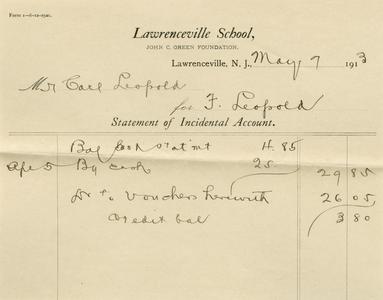 Form 1—6-12-1911.
Lawrenceville School,
JOHN C. GREEN FOUNDATION.
Lawrenceville, N. J., May 7 1913
Mr Carl Leopold
for F. Leopold
Statement of Incidental Account.
Bal statmt 4.85
Apr 5 By cash 25. 29 85
Dr to Vouchers herewith 26 05
Credit bal 3 80